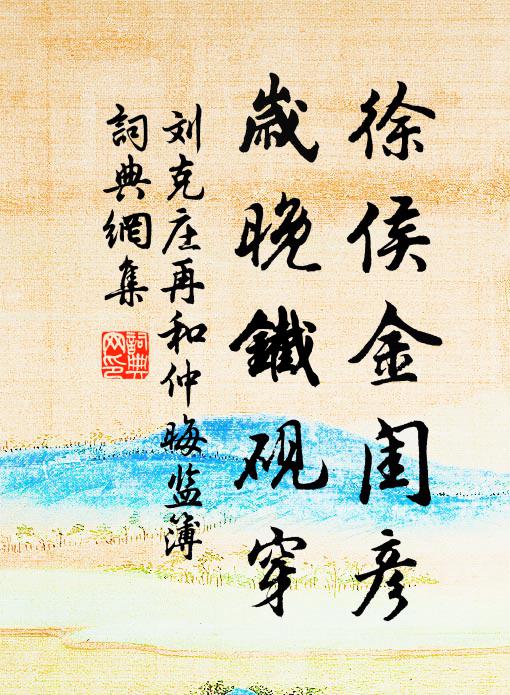 徐侯金闺彦
歲晚鐵硯穿
刘克庄再和仲晦监簿
詞典網集
詞典網印